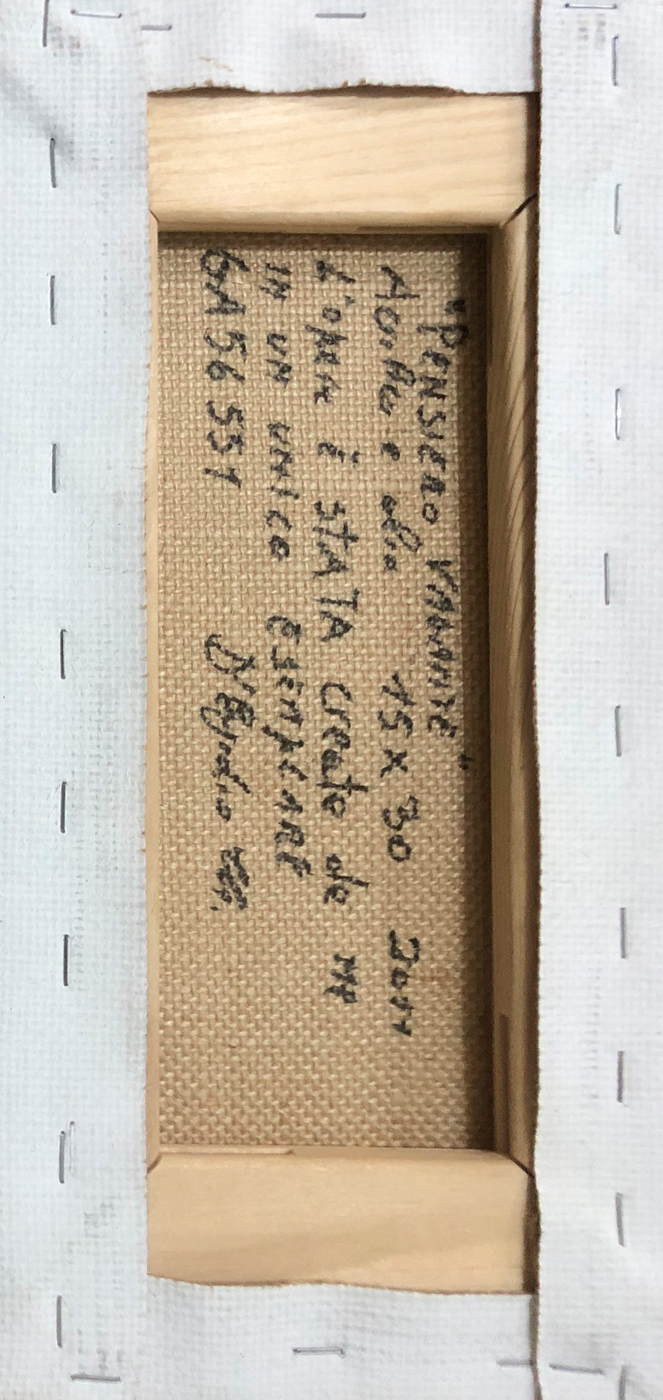 "PENSIERO VAGANTE"
Acrilico e olio 15x30 2011
L'opera è STATA creata da me
IN UN UNICO ESEMPLARE
GA56551